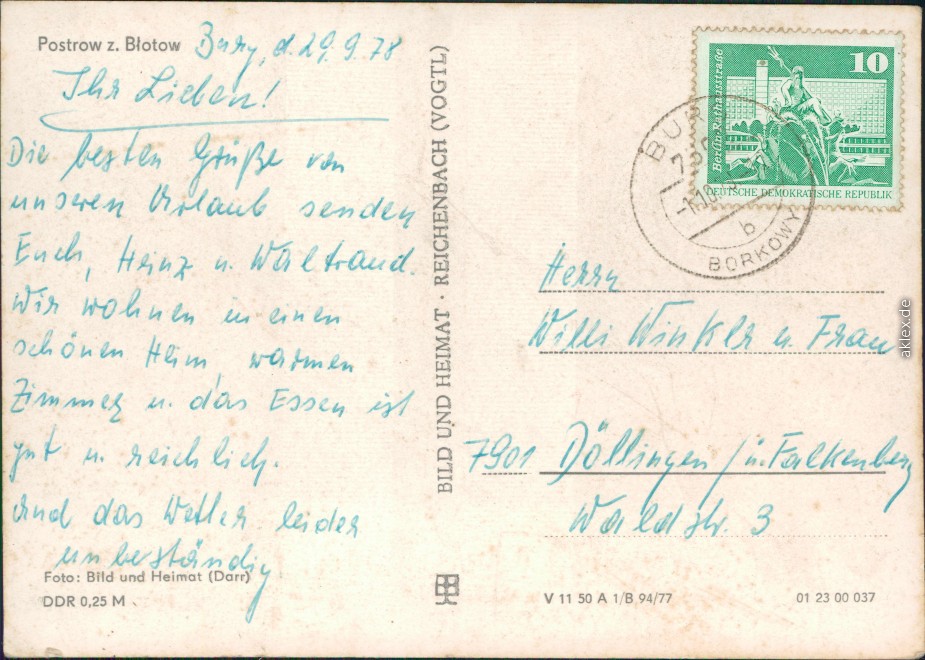 Postrow z. Błotow
Burg, d. 29.9.78
Ihr Lieben!
Die besten Grüße von
unseren Urlaub senden
Euch, Heinz u. Waltraud.
Wir wohnen in einen
schönen Heim, warmen
Zimmer u. das Essen ist
gut u. reichlich.
und das Wetter leider
unbeständig
Foto: Bild und Heimat (Darr)
DDR 0,25 M
BILD UND HEIMAT · REICHENBACH (VOGTL)
10
Berlin-Rathausstraße
DEUTSCHE DEMOKRATISCHE REPUBLIK
BUR
b
BORKOWY
Herrn
Willi Winkler u Frau
7901 Döllingen / ü. Falkenberg
Waldstr. 3
V 11 50 A 1/B 94/77
01 23 00 037
aklex.de